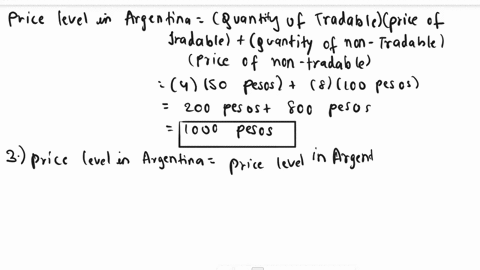 Price level in Argentina = (Quantity of Tradable)(price of
Tradable) + (quantity of non-Tradable)
(Price of non-tradable)
= (4) (50 pesos) + (8)(100 pesos)
= 200 pesos + 800 pesos
= 1000 pesos
3.) price level in Argentina = price level in Argent